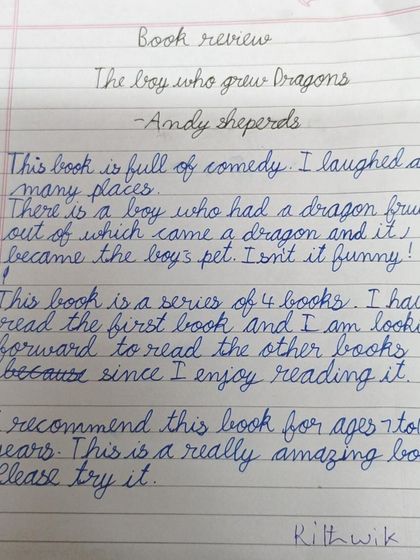 Book review
The boy who grew Dragons
-Andy sheperds
This book is full of comedy. I laughed a
many places.
There is a boy who had a dragon fru
out of which came a dragon and it
became the boy's pet. Isn't it funny!
This book is a series of 4 books. I ha
read the first book and I am looki
forward to read the other books
because since I enjoy reading it.
I recommend this book for ages 7 to
years. This is a really amazing bo
Please try it.
Rithwik